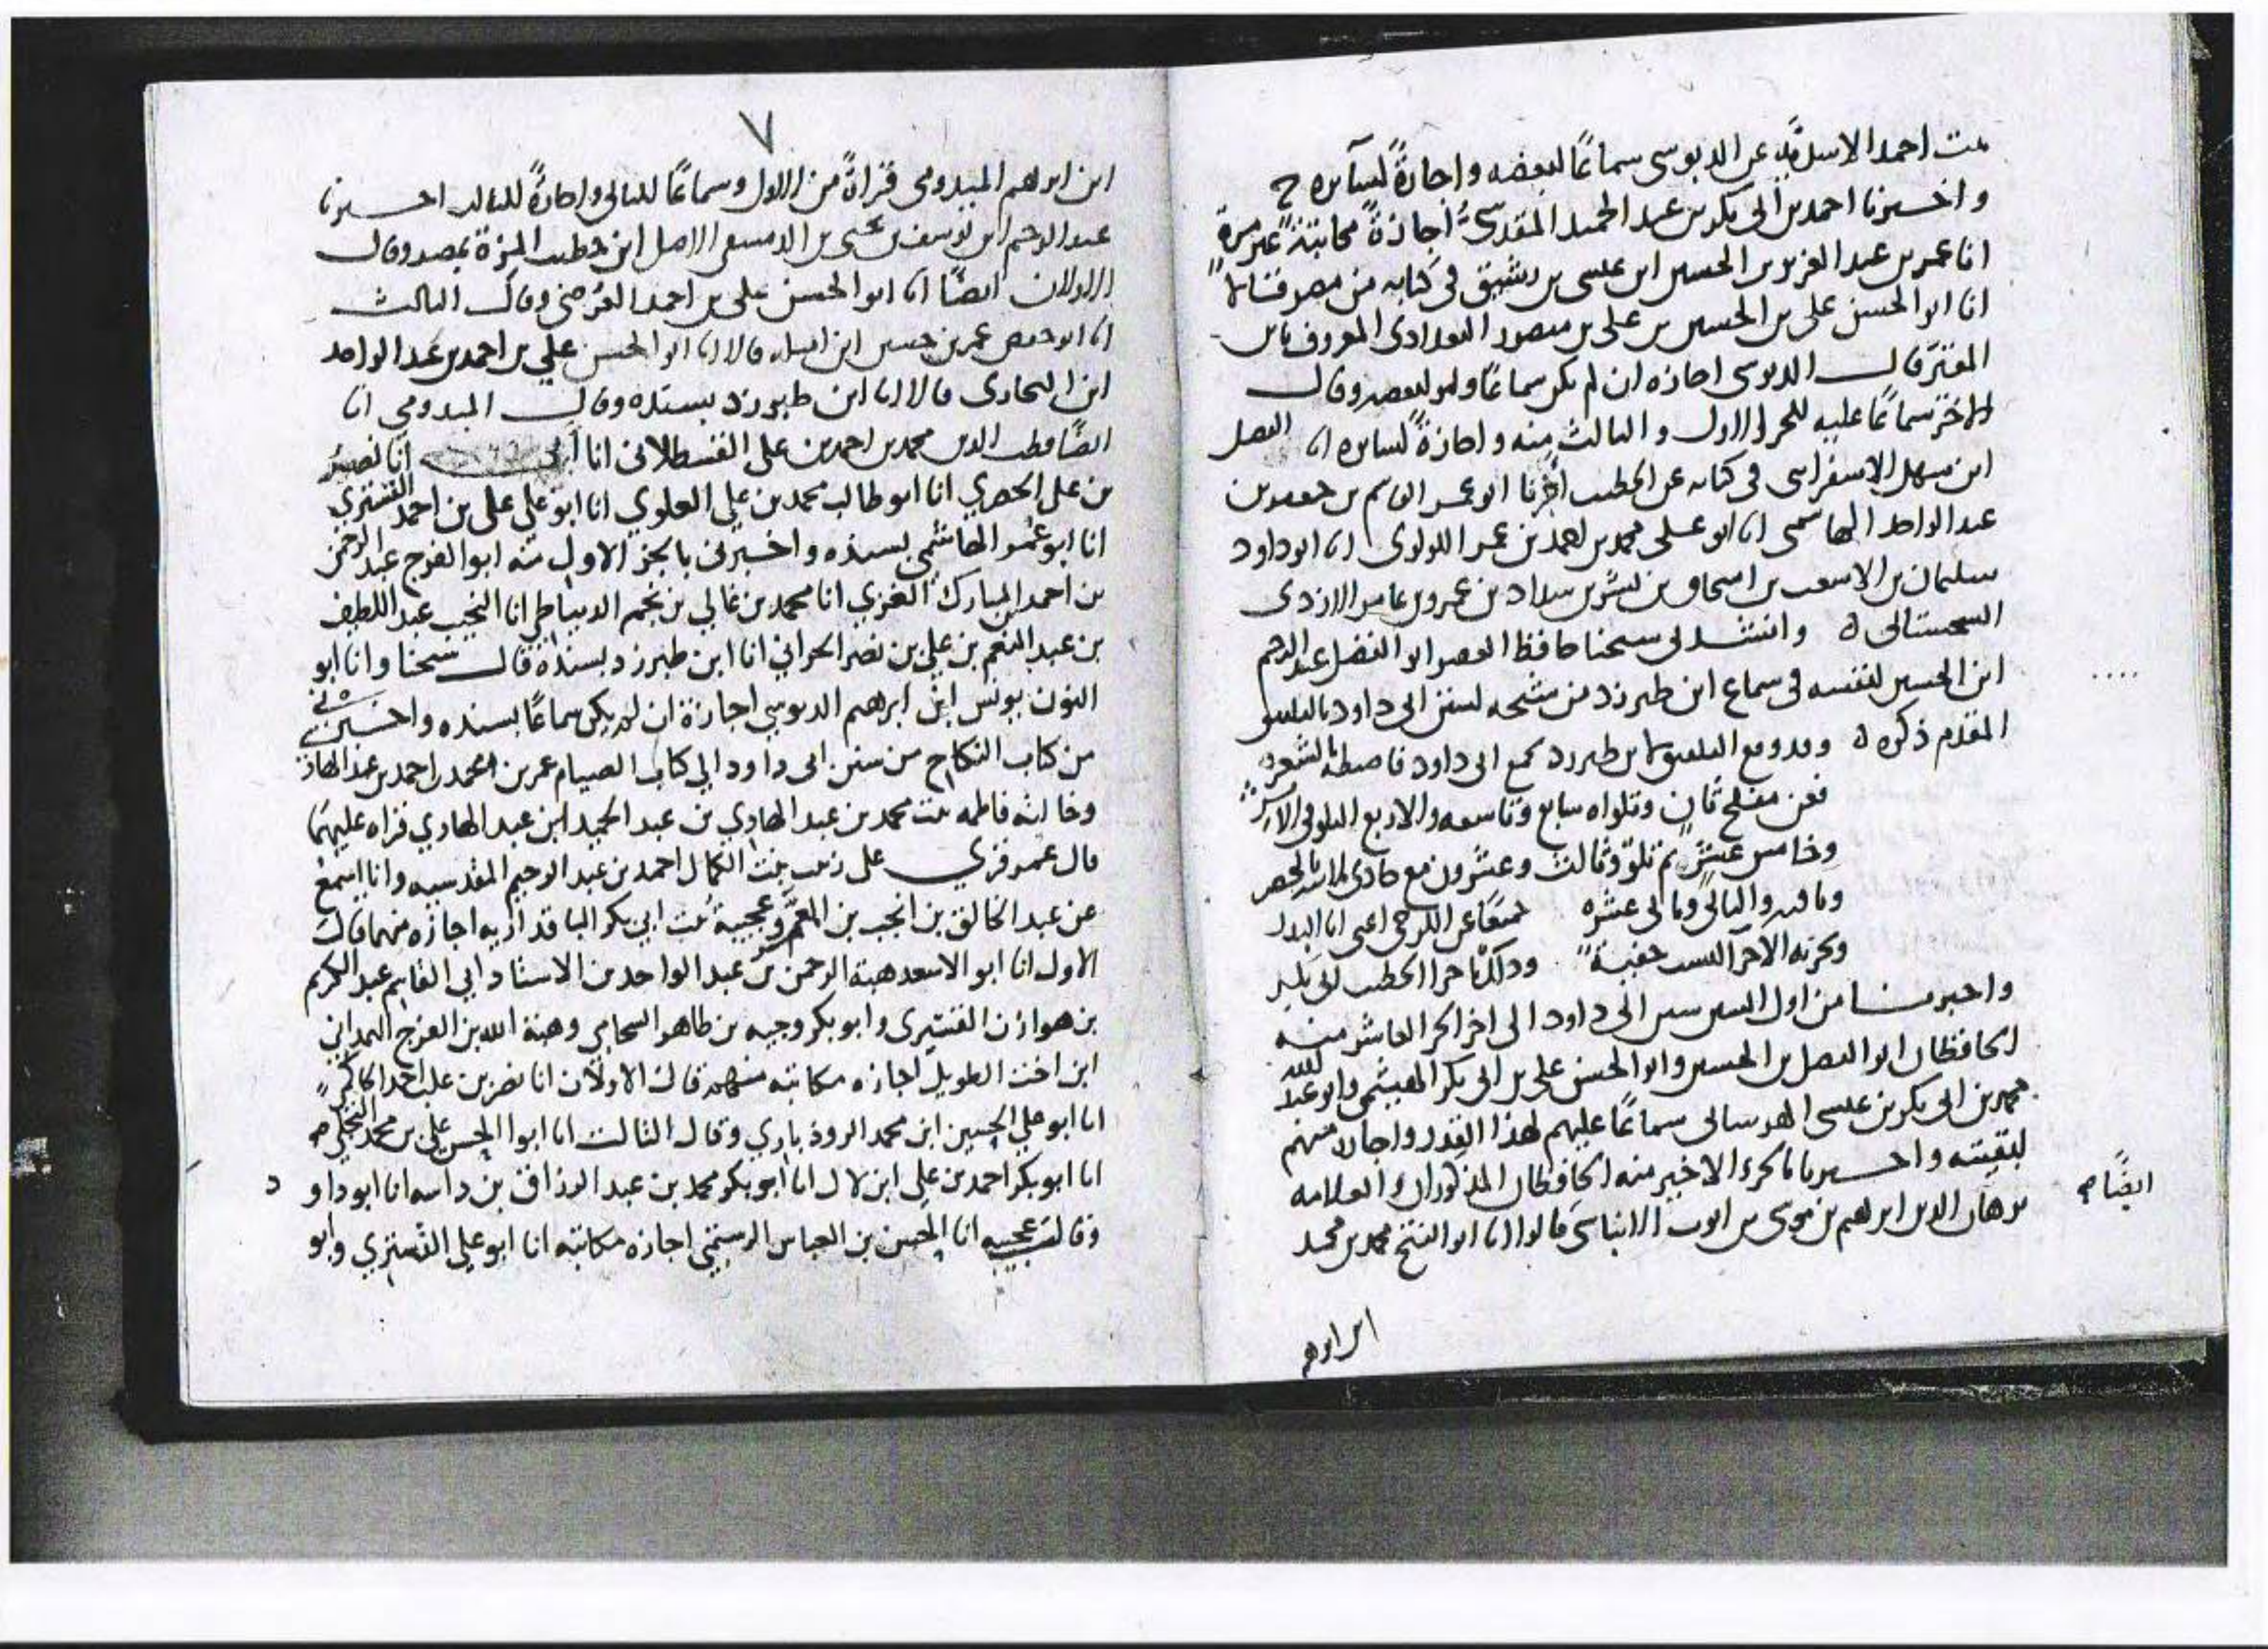 بنت احمد عن الدبوسي سماعًا لبعضه واجازةً لسآيره ح
واخبرنا احمد بن ابي بكر بن عبد الحميد المقدسي اجازةً مكاتبةً غير مرة
انا عمر بن عبد العزيز بن الحسين ابن عيسى بن رشيق في كتابه من مصر
انا ابو الحسن علي بن الحسين بن علي بن منصور البغدادي المعروف بابن
المقير قال الدبوسي اجازه ان لم يكن سماعًا ولو لبعضه وقال
الاخر سماعًا عليه للجزء الاول والثالث منه واجازةً لسايره انا الفضل
ابن سهل الاسفرايني في كتابه عن الخطيب اخبرنا ابو عمر القاسم بن جعفر بن
عبد الواحد الهاشمي انا ابو علي محمد بن احمد بن عمر اللولوي انا ابو داود
سليمان بن الاشعث بن اسحاق بن بشير بن شداد بن عمرو بن عامر الازدي
السجستاني ه وانشدني شيخنا حافظ العصر ابو الفضل عبد الرحيم
ابن الحسين لنفسه في سماع ابن طبرزد من شيخه لسنن ابي داود بالتلفيق
المقدم ذكره ه وقد وقع التلفيق لابن طبرزد
فعن مفلح ثانٍ وتلواه سابع وتاسعه والاربع التلو في الاثر
وخامس عشر ثم تلو وثالث وعشرون مع حادي
والثاني وثاني عشره عن الكرخي اعني ابا البدر
الاخر الست وذلك باجزا الخطيب ابي بكر
واخبرنا من اول السنن سنن ابي داود الى اخر الجزء العاشر منه
الحافظان ابو الفضل بن الحسين وابو الحسن علي بن ابي بكر الهيثمي وابو عبد الله
محمد بن ابي بكر بن عيسى سماعًا عليهم لهذا القدر واجازة منهم
لبقيته واخبرنا بالجزء الاخير منه الحافظان المذكوران والعلامه
ايضًا صح
برهان الدين ابرهيم بن موسى بن ايوب الابناسي قالوا انا ابو الفتح محمد بن محمد
ابن ابرهم
٧
ابن ابرهيم الميدومي قراةً من الاول وسماعًا للثاني واجازةً للثالث اخبرنا
عبد الرحيم ابن يوسف بن يحيى بن الدمشقي الاصل ابن خطيب المزة بمصر وقال
الاولان ايضًا انا ابو الحسن علي بن احمد العرضي وقال الثالث
انا ابو حفص عمر بن حسن ابن اميله قالا انا ابو الحسن علي بن احمد بن عبد الواحد
ابن البخاري قالا انا ابن طبرزد بسنده وقال الميدومي انا
ايضًا قطب الدين محمد بن احمد بن علي القسطلاني انا ابي انا نصر
بن علي الحصري انا ابو طالب محمد بن علي العلوي انا ابو علي علي بن احمد التستري
انا ابو عمر الهاشمي بسنده واخبرني بالجز الاول منه ابو الفرج عبد الرحمن
بن احمد بن المبارك الغزي انا محمد بن غالي بن نجم الدمياطي انا النجيب عبد اللطيف
بن عبد المنعم بن علي بن نصر الحراني انا ابن طبرزد بسنده قال شيخنا وانا ابو
النون يونس ابن ابرهيم الدبوسي اجازة ان لم يكن سماعًا بسنده واخبرني
من كتاب النكاح من سنن ابي داود الى كتاب الصيام عمر بن محمد بن احمد بن عبد الهادي
وخالته فاطمه بنت محمد بن عبد الهادي بن عبد الحميد ابن عبد الهادي قراه عليهما
قال عمر قري على زينب بنت الكمال احمد بن عبد الرحيم المقدسيه وانا اسمع
عن عبد الخالق بن انجب بن المعمر وعجيبة بنت ابي بكر الباقداريه اجازه منهما قال
الاول انا ابو الاسعد هبة الرحمن بن عبد الواحد بن الاستاد ابي القاسم عبد الكريم
بن هوازن القشيري وابو بكر وجيه بن طاهر الشحامي وهبة الله بن الفرج الهمداني
ابن اخت الطويل اجازه مكاتبه منهم قال الاولان انا نصر بن علي بن احمد الحاكمي
انا ابو علي الحسين ابن محمد الروذباري وقال الثالث انا ابو الحسن علي بن محمد البجلي صح
انا ابو بكر احمد بن علي ابن لال انا ابو بكر محمد بن عبد الرزاق بن داسه انا ابو داو د
وقالت عجيبه انا الحسن بن العباس الرستمي اجازه مكاتبه انا ابو علي التستري وابو